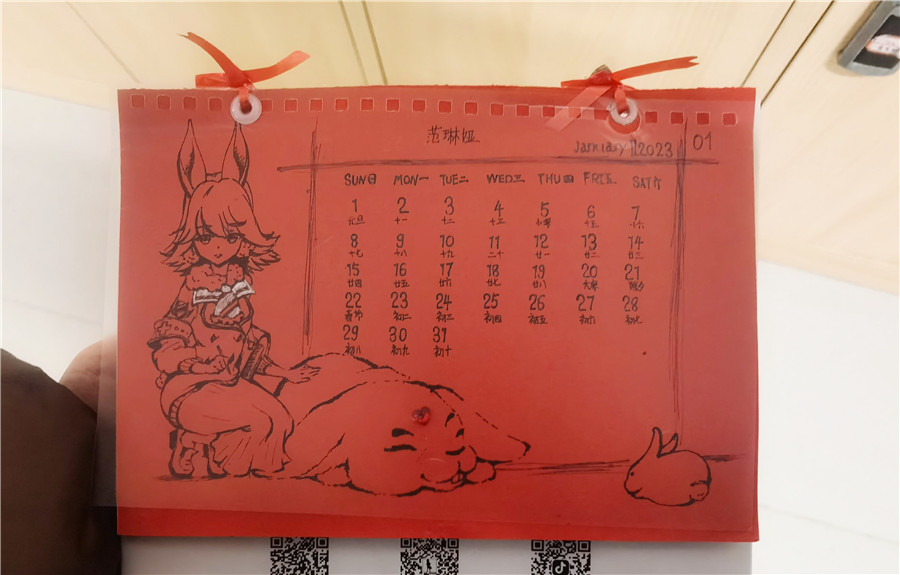 范琳娅
January 2023
01
SUN日 MON一 TUE二 WED三 THU四 FRI五 SAT六
1 2 3 4 5 6 7
元旦 十一 十二 十三 小寒 十五 十六
8 9 10 11 12 13 14
十七 十八 十九 二十 廿一 廿二 廿三
15 16 17 18 19 20 21
廿四 廿五 廿六 廿七 廿八 大寒 除夕
22 23 24 25 26 27 28
春节 初二 初三 初四 初五 初六 初七
29 30 31
初八 初九 初十